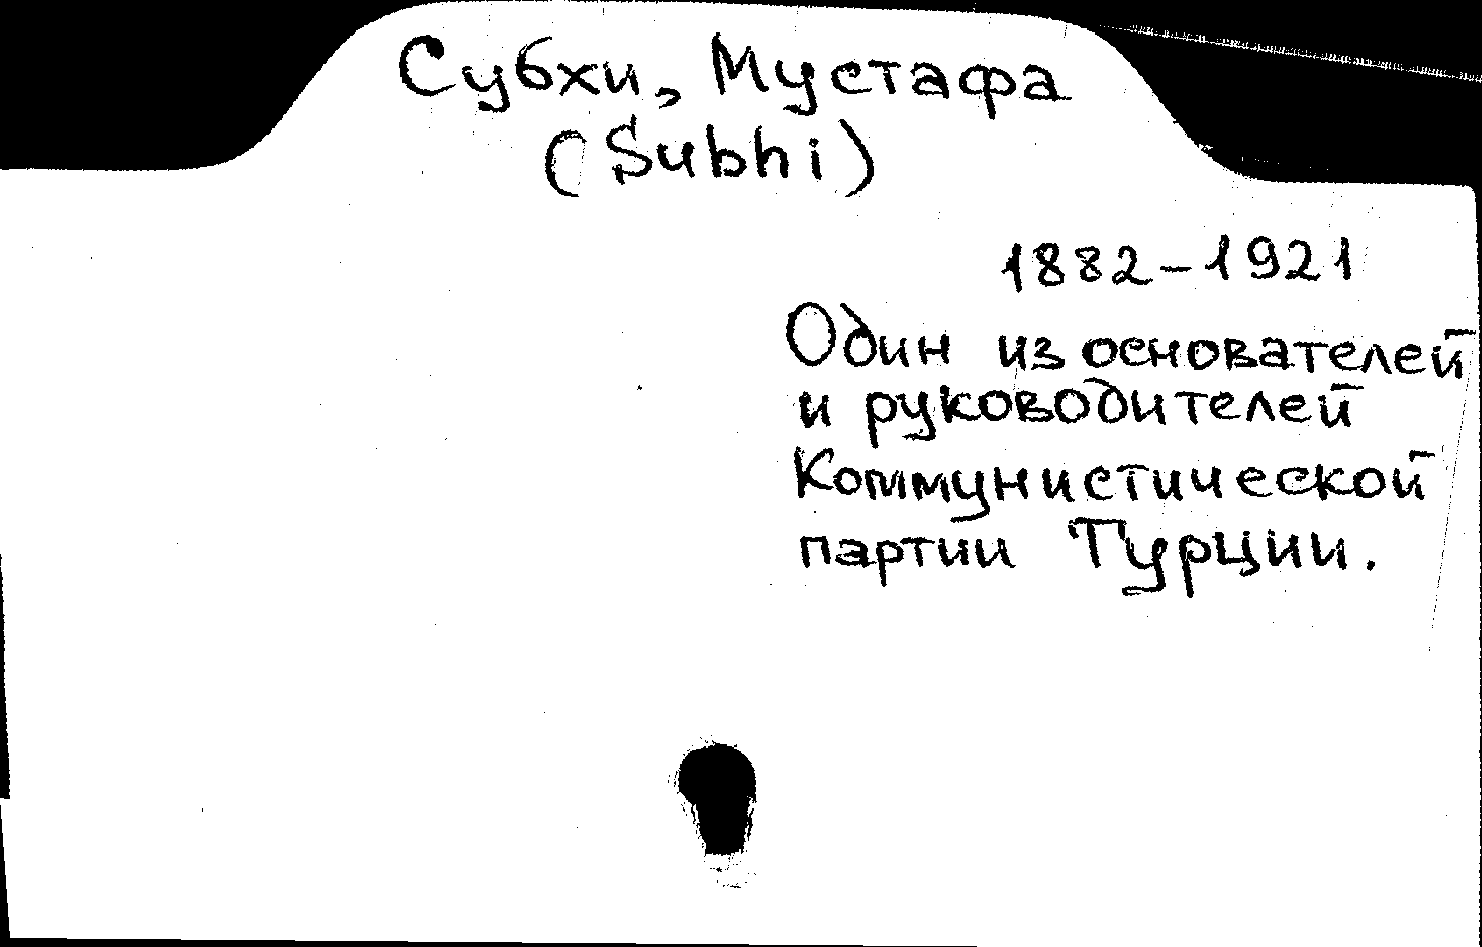 Субхи, Мустафа
(Subhi)
1882-1921
Один из основателей
и руководителей
Коммунистической
партии Турции.